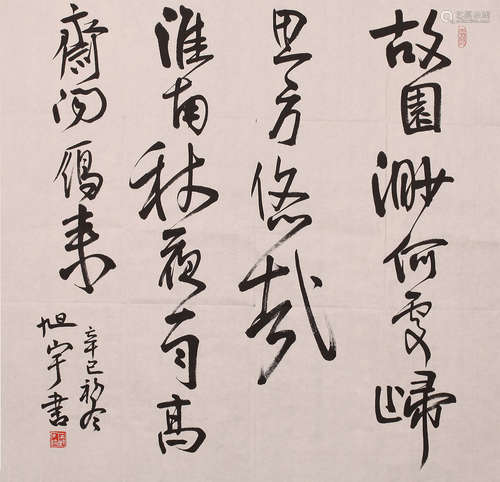 故園渺何處歸
思方悠哉
淮南秋夜雨高
齋聞雁來
辛巳初冬
旭宇書